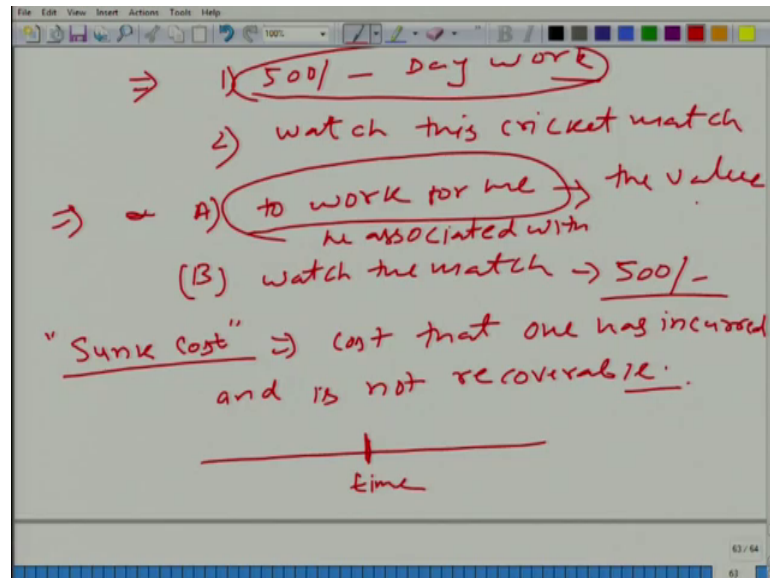 File Edit View Insert Actions Tools Help
100%
⇒ 1) 500/- Day work
2) watch this cricket match
⇒ A) to work for me → the value
he associated with
(B) watch the match → 500/-
"Sunk Cost" ⇒ cost that one has incurred
and is not recoverable.
time
63 / 64
63